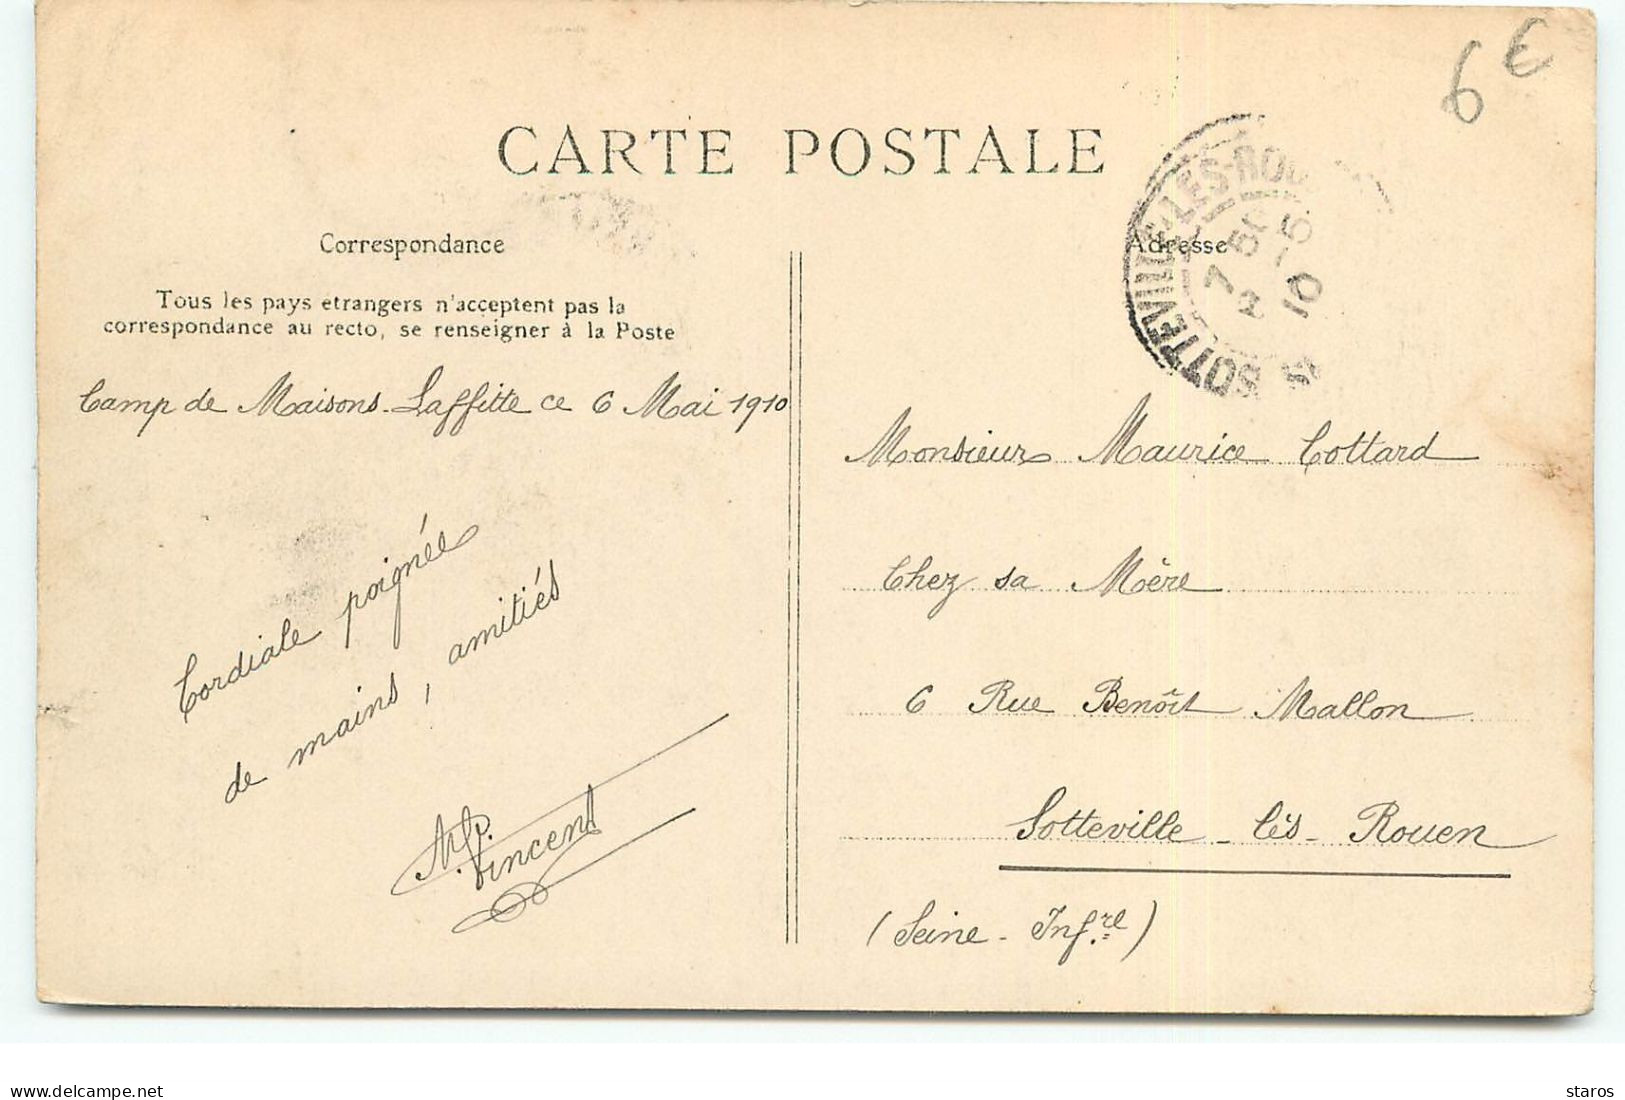 6 €
CARTE POSTALE
Correspondance
Tous les pays étrangers n'acceptent pas la
correspondance au recto, se renseigner à la Poste
Camp de Maisons-Laffitte ce 6 Mai 1910
Cordiale poignée
de mains, amitiés
M. Vincent
Adresse
SOTTEVILLE-LES-ROU
7 50
2 -5
10
Monsieur Maurice Cottard
Chez sa Mère
6 Rue Benoît Mallon
Sotteville-lès-Rouen
(Seine-Inf.re)
delcampe.net
staros